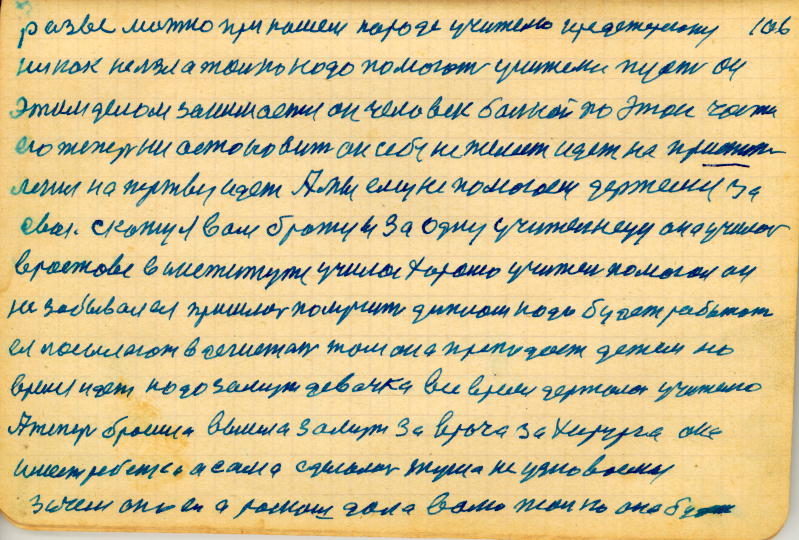 разве можно при нашем народе учителю 106
никак нельзя только надо помогат учителю пуст он
этим делом занимается он человек больной по этой части
его тепер ни астоновит он себе не желает идет на приступ
ления на жертву идет А мы ему не помогаем держемся за
свое. скажу я вам братуи за одну учительнецу она училас
в ростове в институте училас хорошо учител помогал он
не забывал ея пришлос получит диплом надо будет работат
ея посылают в дегистан там она преподает детем но
время идет надо замуж девачка все время держалас учителю
А тепер бросила вышла замуж за врача за хирурга она
имеет ребенка а сама сделалас туша не узноваемая
зачем он ея а роскош дала вамо она буд